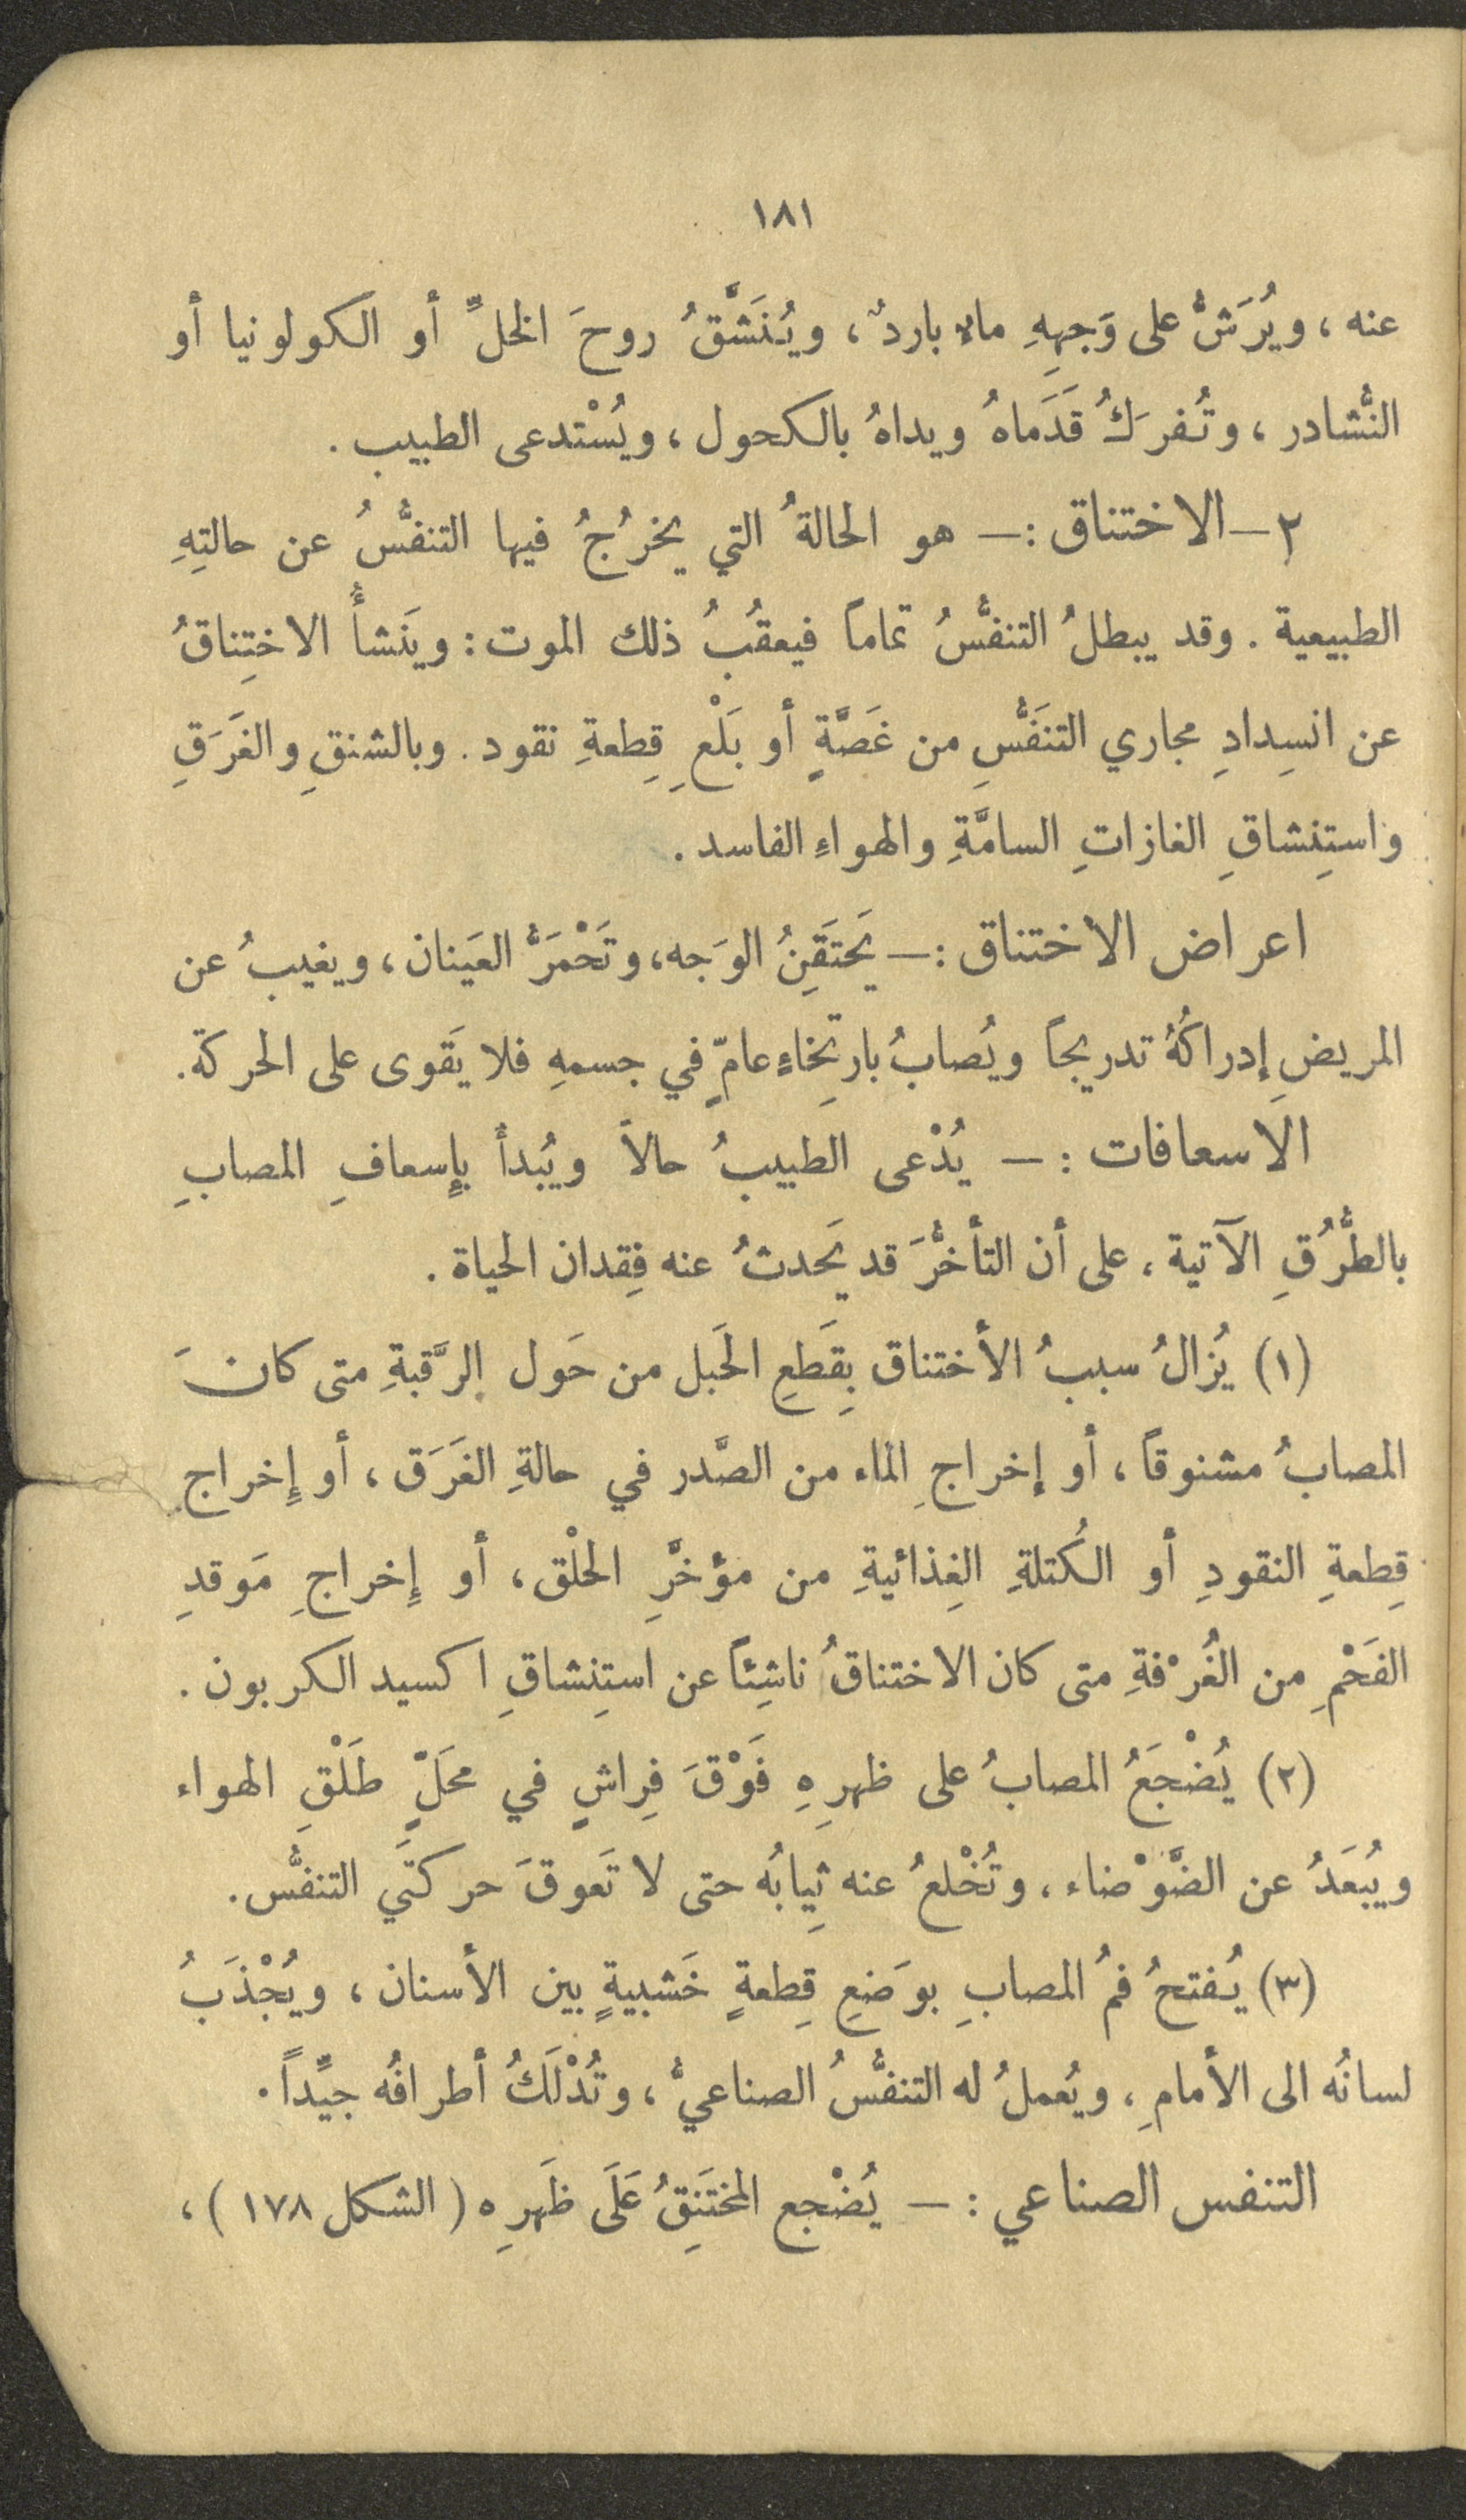 ١٨١
عنه ، ويُرَشُّ على وَجهِهِ ماءٌ باردٌ ، ويُنَشَّقُ روحَ الخلِّ أو الكولونيا أو
النُّشادر ، وتُفرَكُ قَدَماهُ ويداهُ بالكحول ، ويُسْتدعى الطبيب .
٢ – الاختناق : – هو الحالةُ التي يخرُجُ فيها التنفُّسُ عن حالتِهِ
الطبيعية . وقد يبطلُ التنفُّسُ تماماً فيعقُبُ ذلك الموت : ويَنشأُ الاختِناقُ
عن انسِدادِ مجاري التنَفُّسِ من غَصَّةٍ أو بَلْعِ قِطعةِ نقود . وبالشنقِ والغَرَقِ
واستِنشاقِ الغازاتِ السامَّةِ والهواءِ الفاسد .
اعراض الاختناق : – يَحتَقِنُ الوَجه ، وتَحْمَرُّ العَينان ، ويغيبُ عن
المريضِ إدراكُهُ تدريجاً ويُصابُ بارتِخاءٍ عامٍّ في جسمهِ فلا يَقوى على الحركة .
الاسعافات : – يُدْعى الطبيبُ حالاً ويُبدأُ بإِسعافِ المصابِ
بالطُّرُقِ الآتية ، على أن التأخُّرَ قد يَحدثُ عنه فِقدان الحياة .
(١) يُزالُ سببُ الأختناق بِقَطعِ الحَبل من حَول الرَّقبةِ متى كانَ
المصابُ مشنوقاً ، أو إخراجِ الماء من الصَّدر في حالةِ الغَرَق ، أو إِخراج
قِطعةِ النقودِ أو الكُتلةِ الغِذائيةِ من مؤخَّرِ الحلْق ، أو إِخراجِ مَوقدِ
الفَحْمِ من الغُرْفةِ متى كان الاختناقُ ناشِئاً عن استِنشاقِ اكسيد الكربون .
(٢) يُضْجَعُ المصابُ على ظهرِهِ فَوْقَ فِراشٍ في محَلٍّ طَلْقِ الهواء
ويُبعَدُ عن الضَّوْضاء ، وتُخْلعُ عنه ثِيابُه حتى لا تَعوقَ حركتَي التنفُّس .
(٣) يُفتحُ فمُ المصابِ بوَضعِ قِطعةٍ خَشبيةٍ بين الأسنان ، ويُجْذَبُ
لسانُه الى الأمامِ ، ويُعملُ له التنفُّسُ الصناعيُّ ، وتُدْلَكُ أطرافُه جيِّداً .
التنفس الصناعي : – يُضْجع المختَنِقُ عَلَى ظَهرِه ( الشكل ١٧٨ ) ،